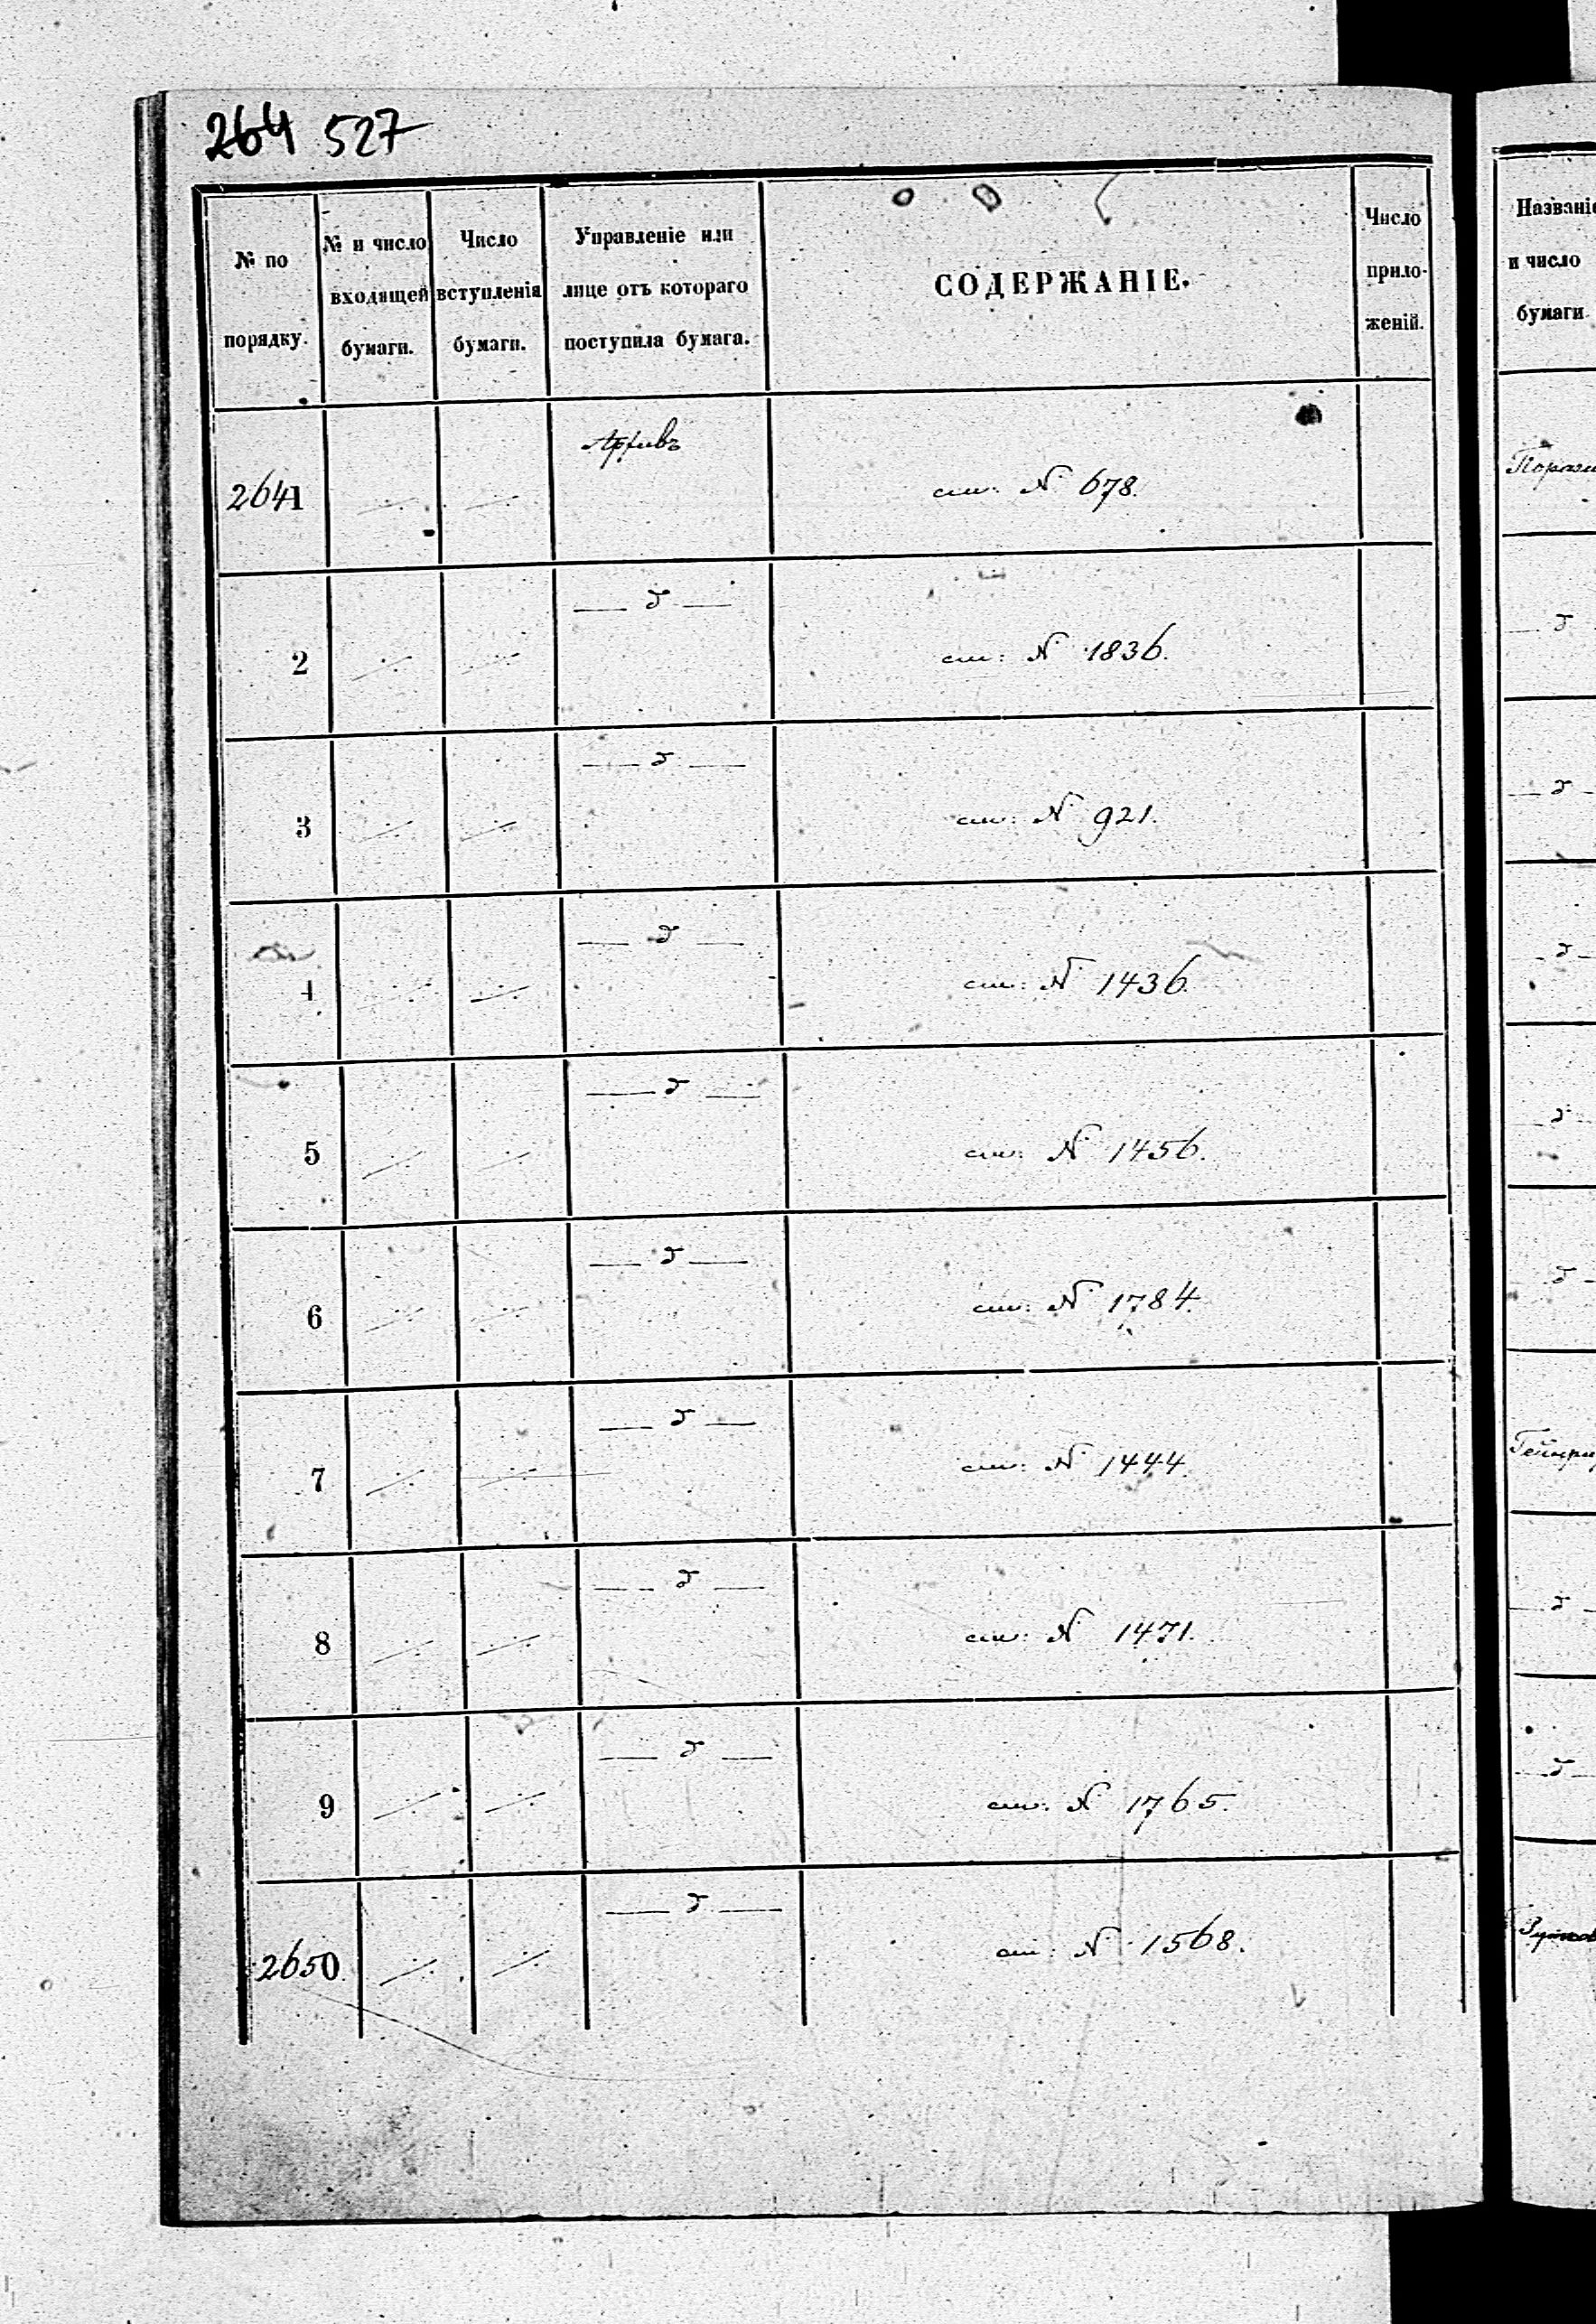 264 527
№ по порядку.
№ и число входящей бумаги.
Число вступленія бумаги.
Управленіе или лице отъ котораго поступила бумага.
СОДЕРЖАНІЕ.
Число прило- женій.
Названіе и число бумаги
2641 Архивъ см: № 678.
2 — д — см: № 1836.
— д
3 — д — см: № 921.
— д —
4 — д — см: № 1436.
— д —
5 — д — см: № 1456.
— д
6 — д — см: № 1784.
— д —
7 — д — см: № 1444.
8 — д — см: № 1471.
— д —
9 — д — см: № 1765.
— д —
2650. — д — см: № 1568.